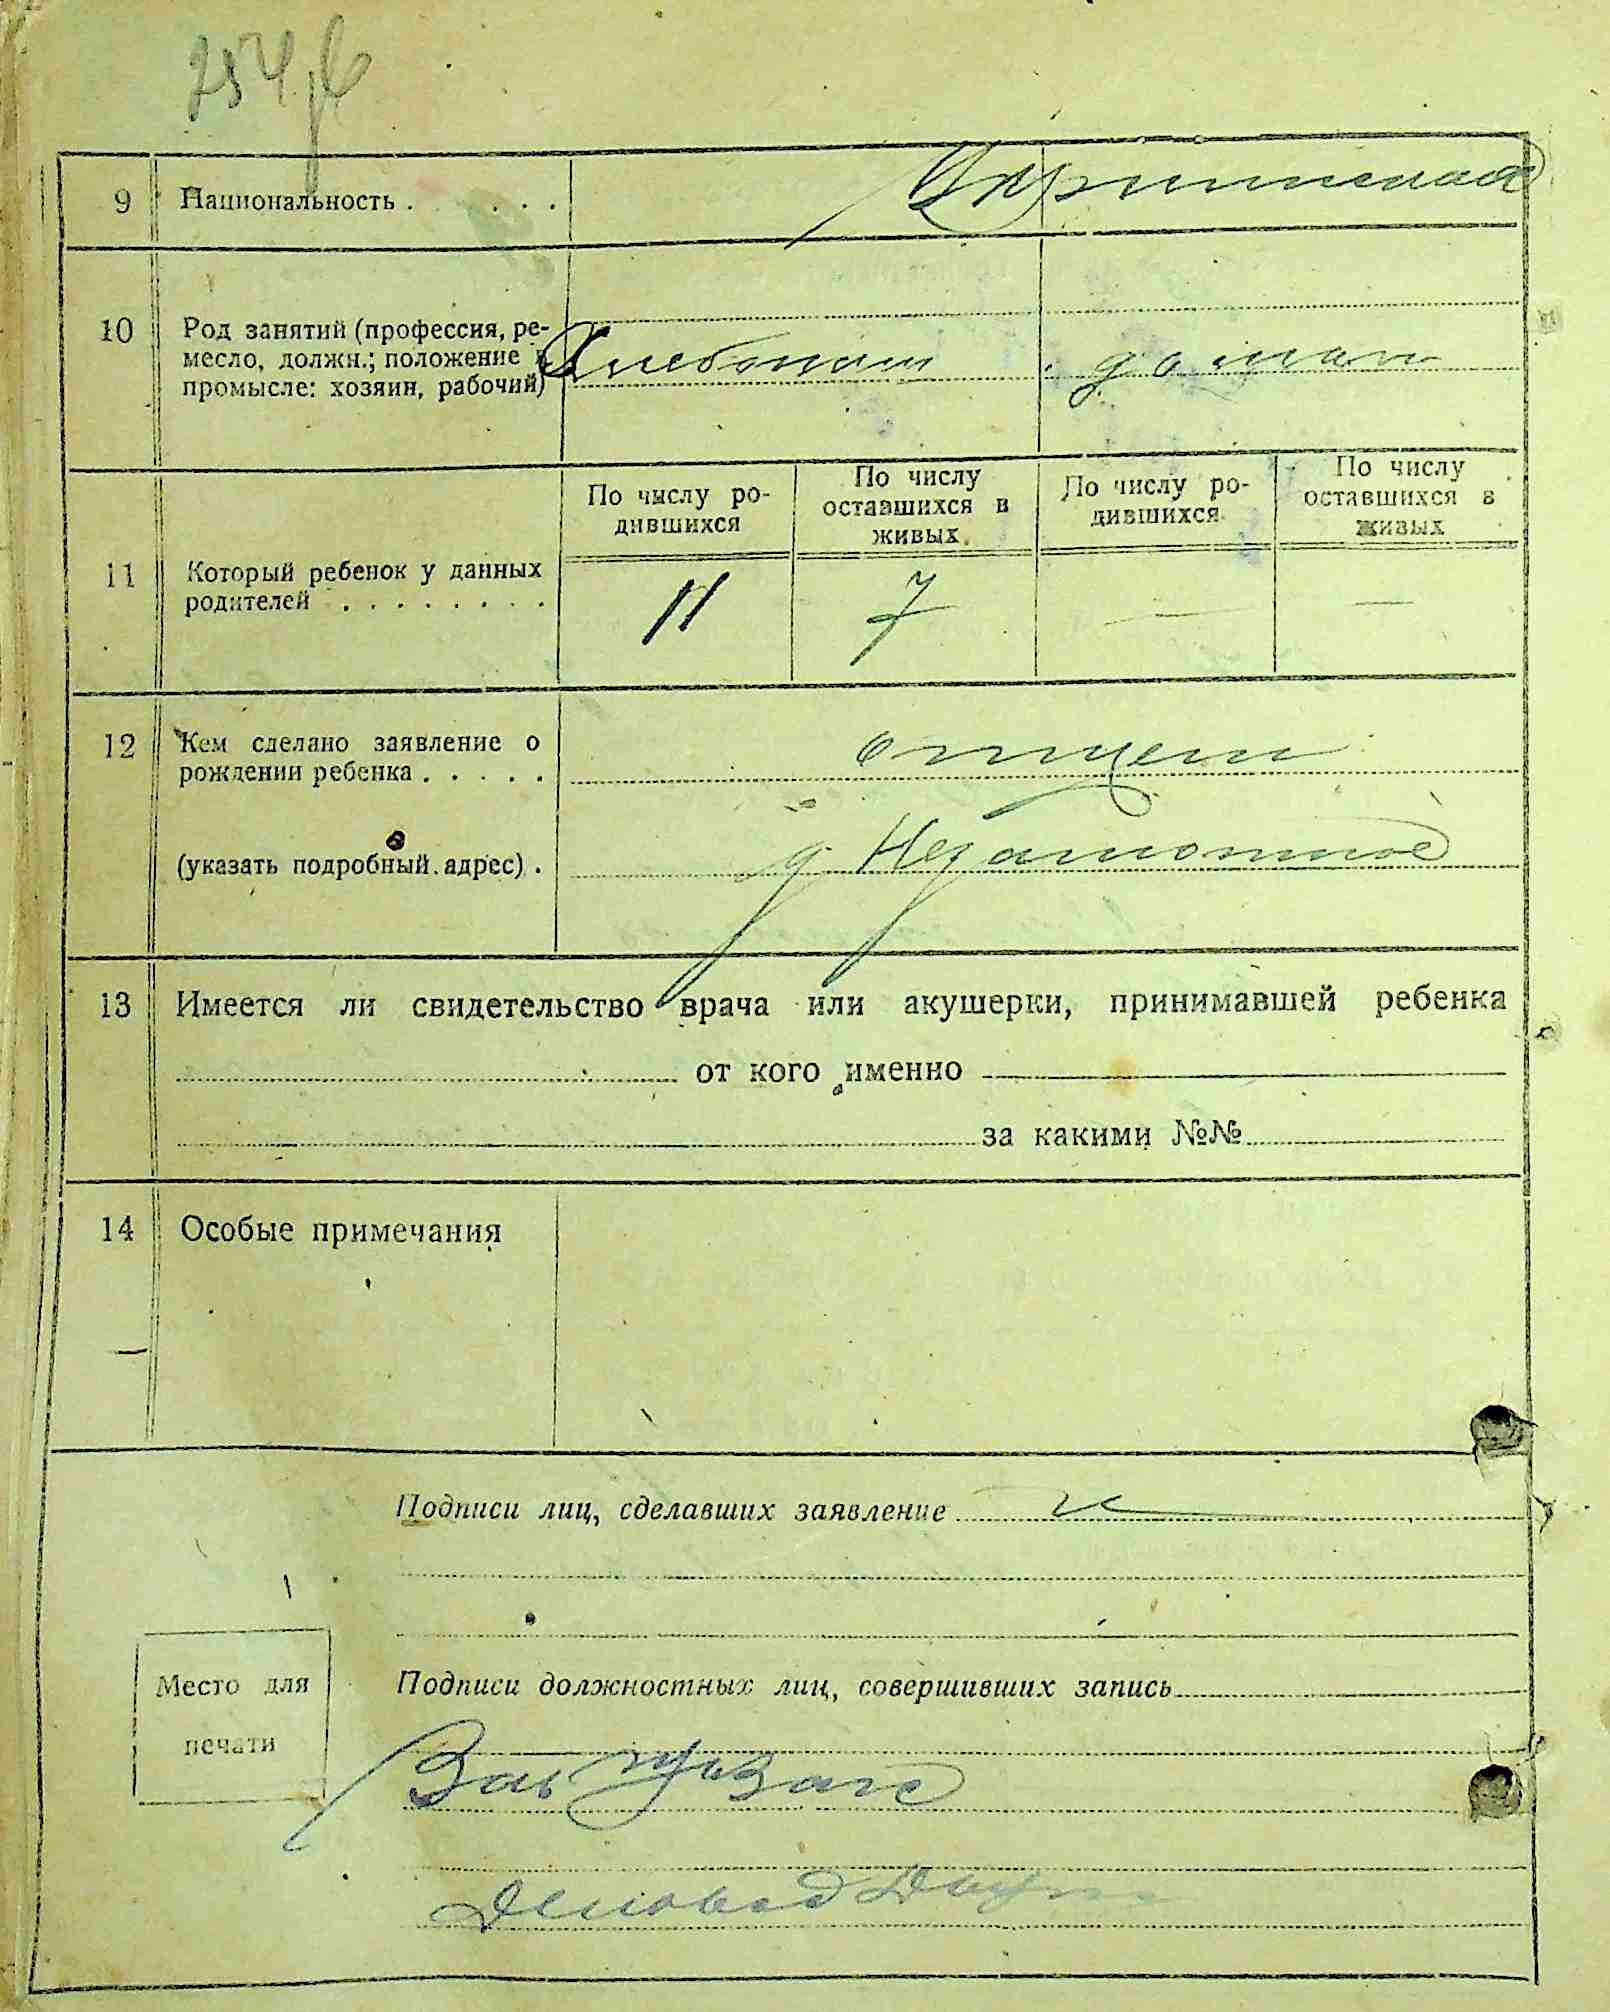 254
9 Национальность . . . . . Украинская
10 Род занятий (профессия, ре-
месло, должн.; положение в
промысле: хозяин, рабочий)
Хлебопаш домаш
По числу ро-
дившихся
По числу
оставшихся в
живых
По числу ро-
дившихся
По числу
оставшихся в
живых
11 Который ребенок у данных
родителей . . . . . . . .
11 7 — —
12 Кем сделано заявление о
рождении ребенка . . . . .
отцем
(указать подробный адрес) .
д. Незаможное
13 Имеется ли свидетельство врача или акушерки, принимавшей ребенка
от кого именно
за какими №№
14 Особые примечания
Подписи лиц, сделавших заявление
Подписи должностных лиц, совершивших запись
Место для
печати
Зав Загс
Деловод